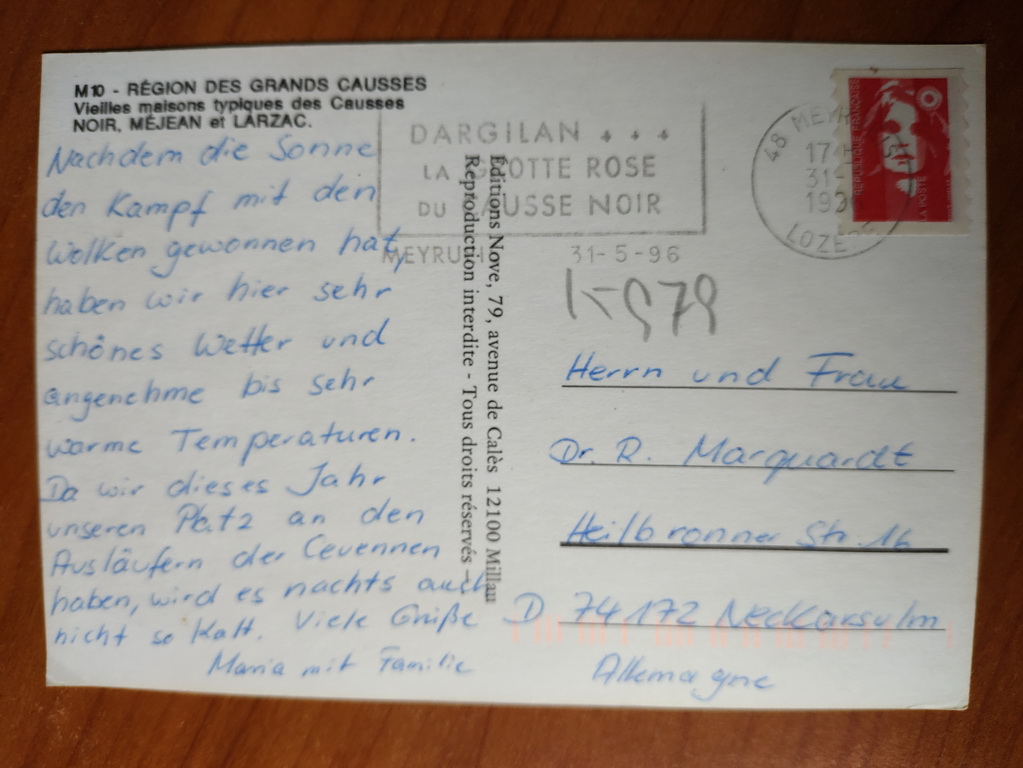 M10 - RÉGION DES GRANDS CAUSSES
Vieilles maisons typiques des Causses
NOIR, MÉJEAN et LARZAC.
Nachdem die Sonne
den Kampf mit den
Wolken gewonnen hat,
haben wir hier sehr
schönes Wetter und
angenehme bis sehr
warme Temperaturen.
Da wir dieses Jahr
unseren Platz an den
Ausläufern der Cevennen
haben, wird es nachts auch
nicht so kalt. Viele Grüße
Maria mit Familie
DARGILAN
LA GROTTE ROSE
DU CAUSSE NOIR
31-5-96
48
17 H
31-
LOZERE
Éditions Nove, 79, avenue de Calès 12100 Millau
Reproduction interdite - Tous droits réservés
Herrn und Frau
Dr. R. Marquardt
Heilbronner Str. 16
D 74172 Neckarsulm
Allemagne